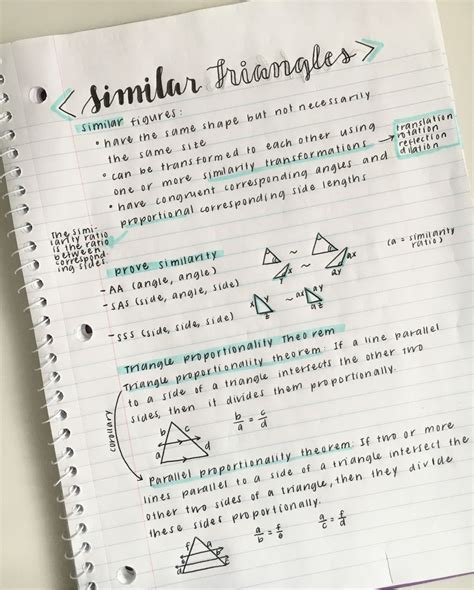 < similar triangles >
similar figures:
• have the same shape but not necessarily
the same site
• can be transformed to each other using
one or more similarity transformations →
translation
rotation
reflection
dilation
• have congruent corresponding angles and
proportional corresponding side lengths
The simi-
larity ratio
is the ratio
between
correspond
ing sides.
prove similarity
- AA (angle, angle)
- SAS (side, angle, side)
- SSS (side, side, side)
~
x
ay
(a = similarity
ratio)
x
y
z
~
ax
ay
az
Triangle Proportionality Theorem
Triangle proportionality theorem: If a line parallel
to a side of a triangle intersects the other two
sides, then it divides them proportionally.
corollary
a
b
c
d
b/a = c/d
Parallel proportionality theorem: If two or more
lines parallel to a side of a triangle intersect the
other two sides of a triangle, then they divide
these sides proportionally.
a/b = f/e
a/c = f/d